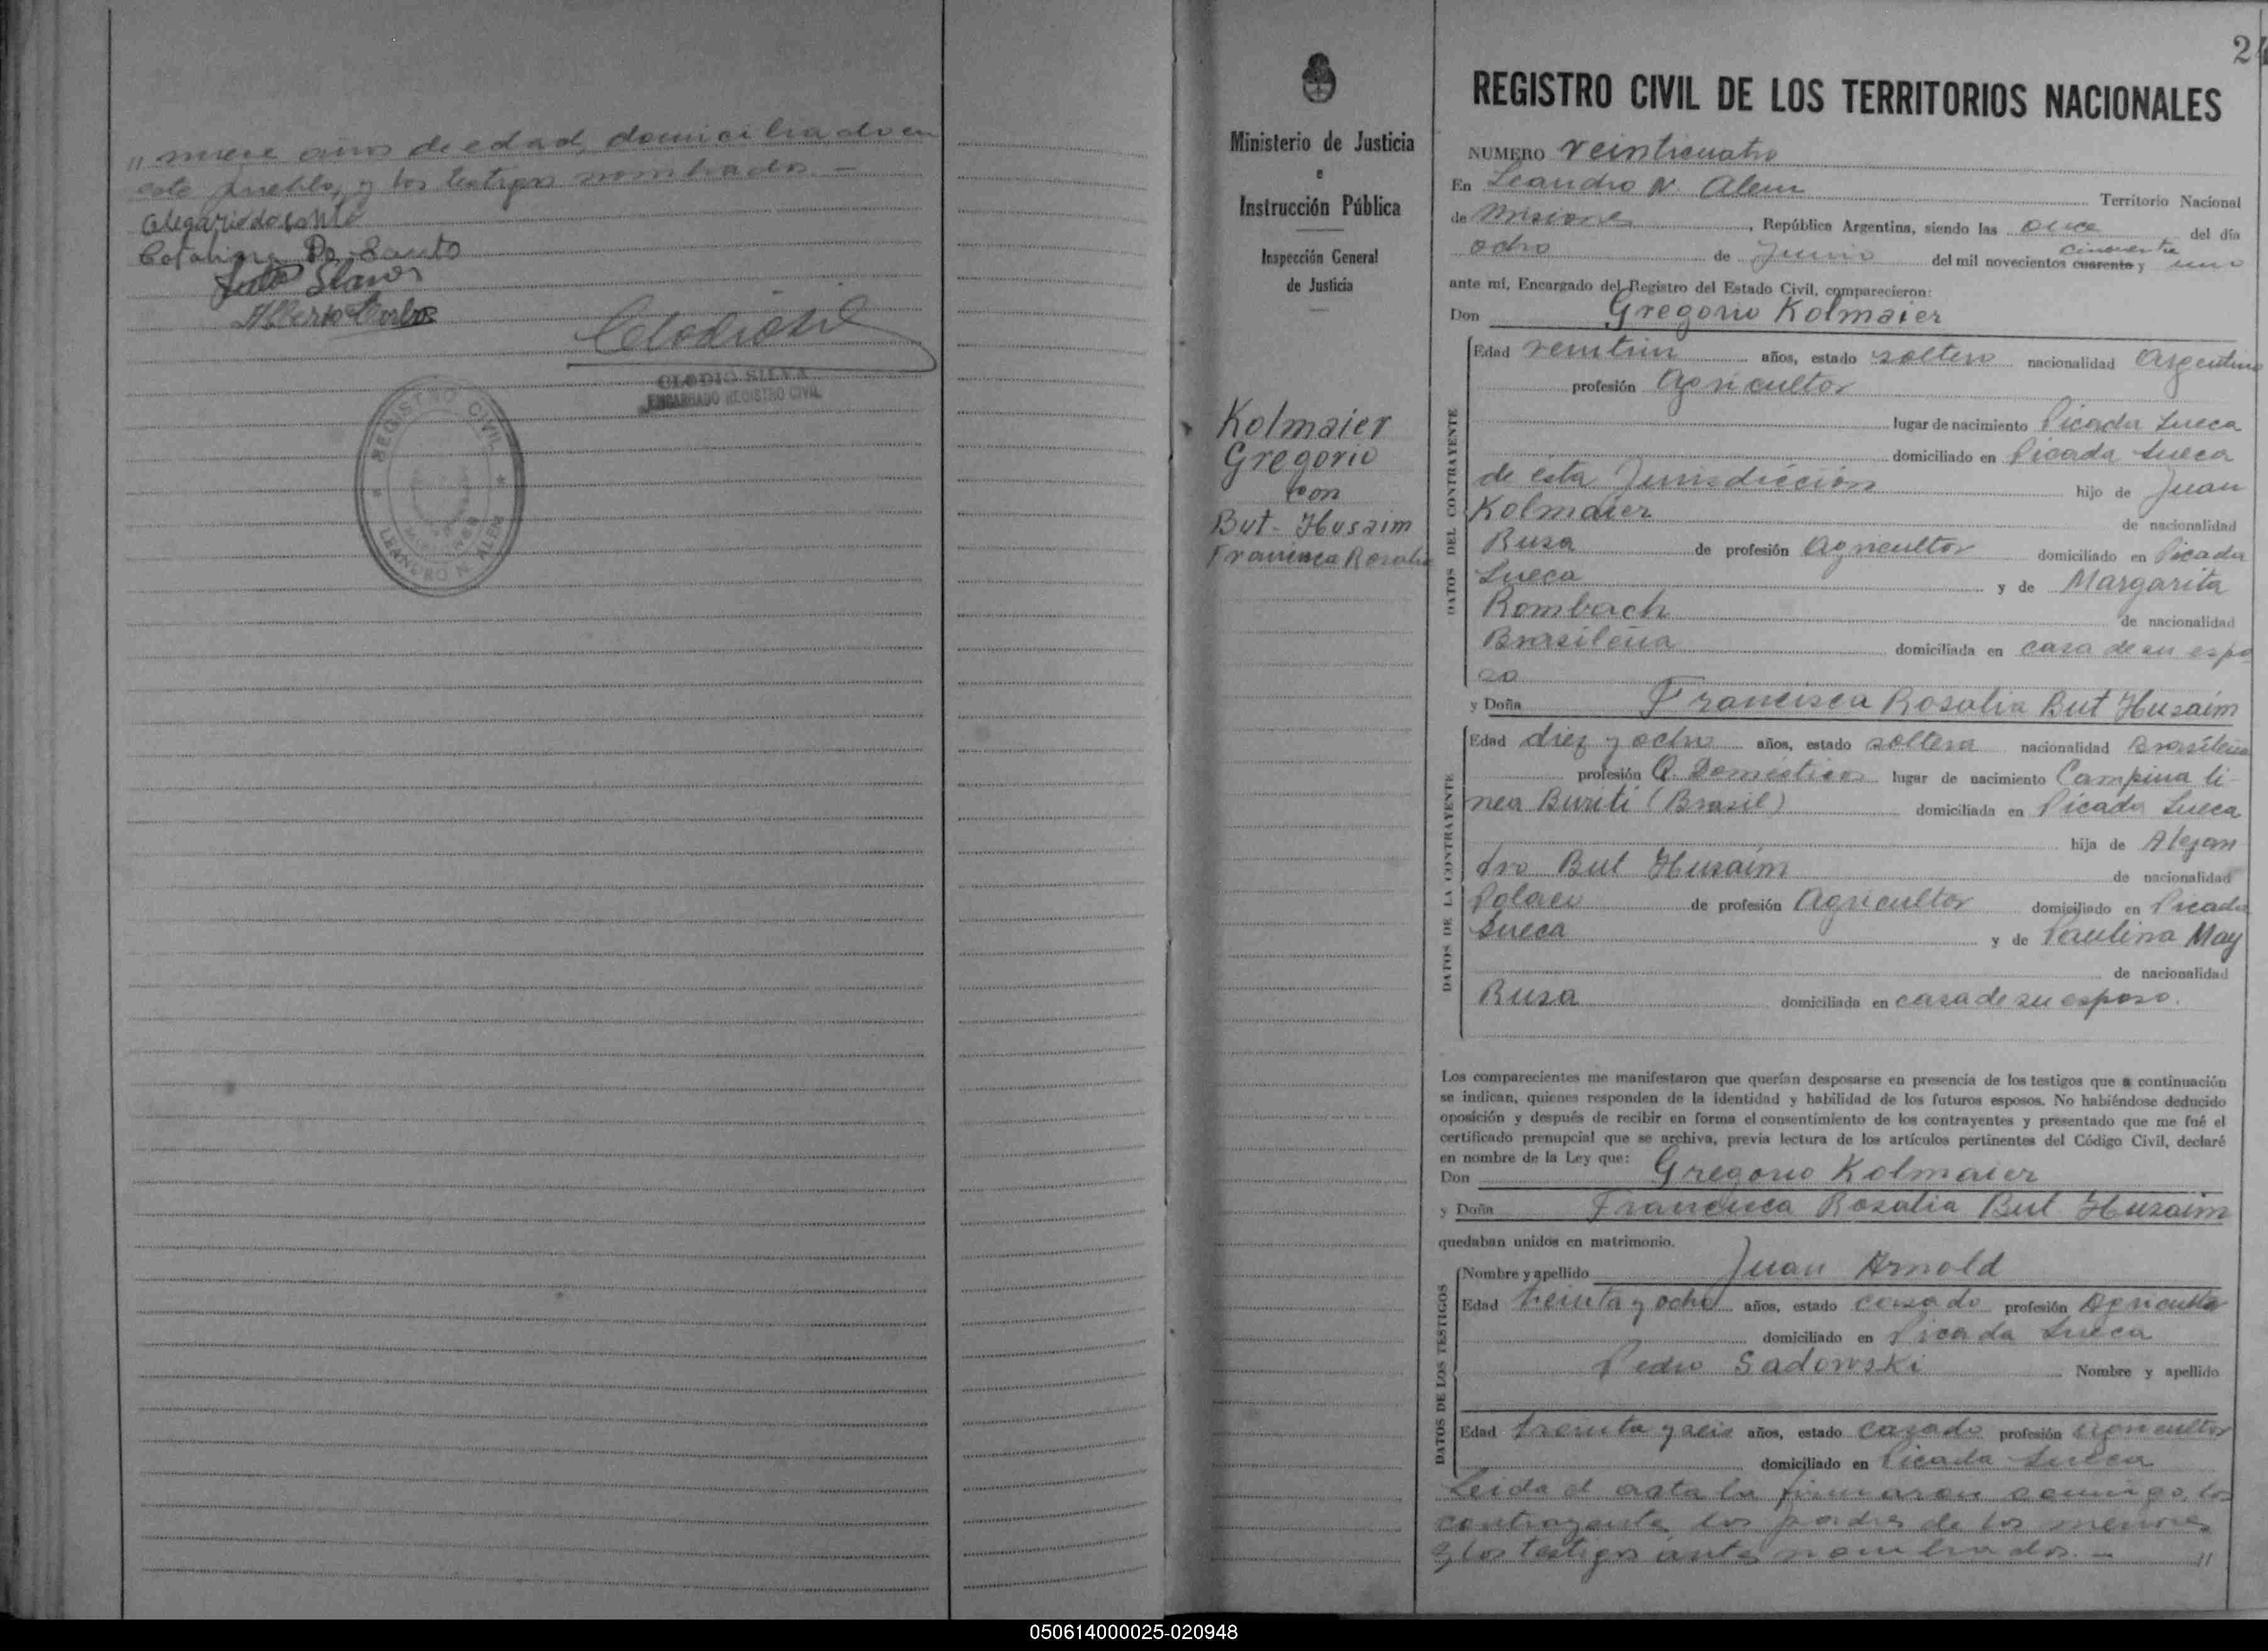 " nueve años de edad, domiciliado en
este pueblo, y los testigos nombrados. —
Catalina Do Santo
CLODIO SILVA
ENCARGADO REGISTRO CIVIL
REGISTRO CIVIL
LEANDRO N. ALEM
24
Ministerio de Justicia
e
Instrucción Pública
Inspección General
de Justicia
Kolmaier
Gregorio
con
But-Husaim
Francisca Rosalia
REGISTRO CIVIL DE LOS TERRITORIOS NACIONALES
NUMERO veinticuatro
En Leandro N. Alem Territorio Nacional
de Misiones, República Argentina, siendo las once del día
ocho de Junio del mil novecientos cuarenta y cincuenta uno
ante mí, Encargado del Registro del Estado Civil, comparecieron:
Don Gregorio Kolmaier
DATOS DEL CONTRAYENTE
Edad años, estado soltero nacionalidad Argentino
profesión Agricultor
lugar de nacimiento Picada Sueca
domiciliado en Picada Sueca
de ésta Jurisdicción hijo de Juan
Kolmaier de nacionalidad
Rusa de profesión Agricultor domiciliado en Picada
Sueca y de Margarita
Rombach de nacionalidad
Brasileña domiciliada en casa de su espo
so
y Doña Francisca Rosalia But Husaim
DATOS DE LA CONTRAYENTE
Edad diez y ocho años, estado soltera nacionalidad Brasileña
profesión Q. Domésticos lugar de nacimiento Campina li-
nea Buriti (Brasil) domiciliada en Picada Sueca
hija de Alejan
dro But Husaim de nacionalidad
Polaco de profesión Agricultor domiciliado en Picada
Sueca y de Paulina May
de nacionalidad
Rusa domiciliada en casa de su esposo.
Los comparecientes me manifestaron que querían desposarse en presencia de los testigos que a continuación
se indican, quienes responden de la identidad y habilidad de los futuros esposos. No habiéndose deducido
oposición y después de recibir en forma el consentimiento de los contrayentes y presentado que me fué el
certificado prenupcial que se archiva, previa lectura de los artículos pertinentes del Código Civil, declaré
en nombre de la Ley que:
Don Gregorio Kolmaier
y Doña Francisca Rosalia But Husaim
quedaban unidos en matrimonio.
DATOS DE LOS TESTIGOS
Nombre y apellido Juan Arnold
Edad treinta y ocho años, estado casado profesión Agricultor
domiciliado en Picada Sueca
Pedro Sadowski Nombre y apellido
Edad treinta y seis años, estado casado profesión agricultor
domiciliado en Picada Sueca
Leida el acta la firmaron conmigo, los
contrayente los padres de los menores
y los testigos antes nombrados. — "
050614000025-020948